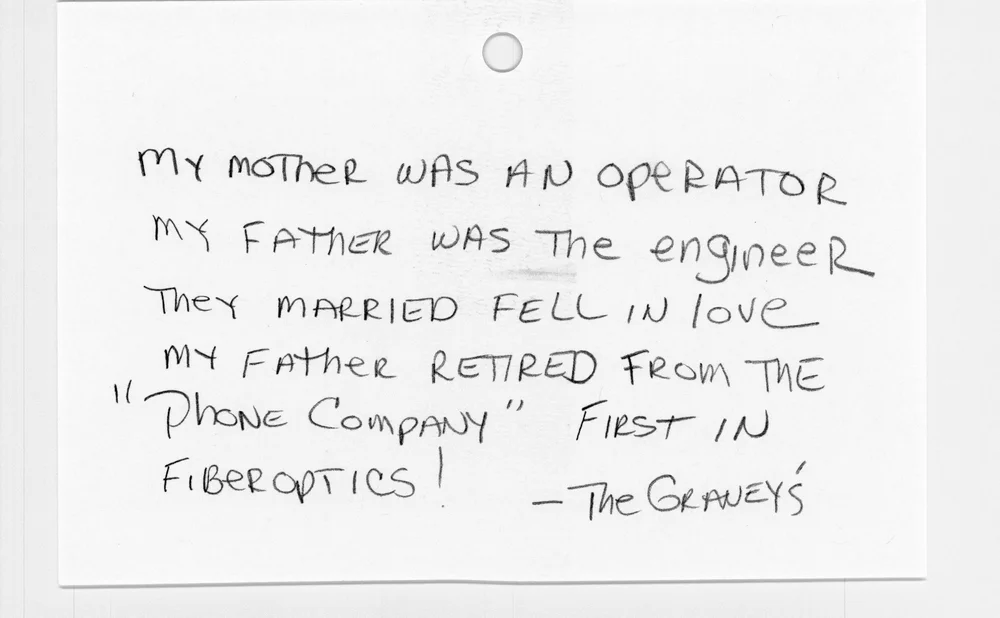 My Mother was an operator
My Father was the engineer
They married fell in love
My Father retired from the
"Phone Company" First in
Fiberoptics!
— The Graney's